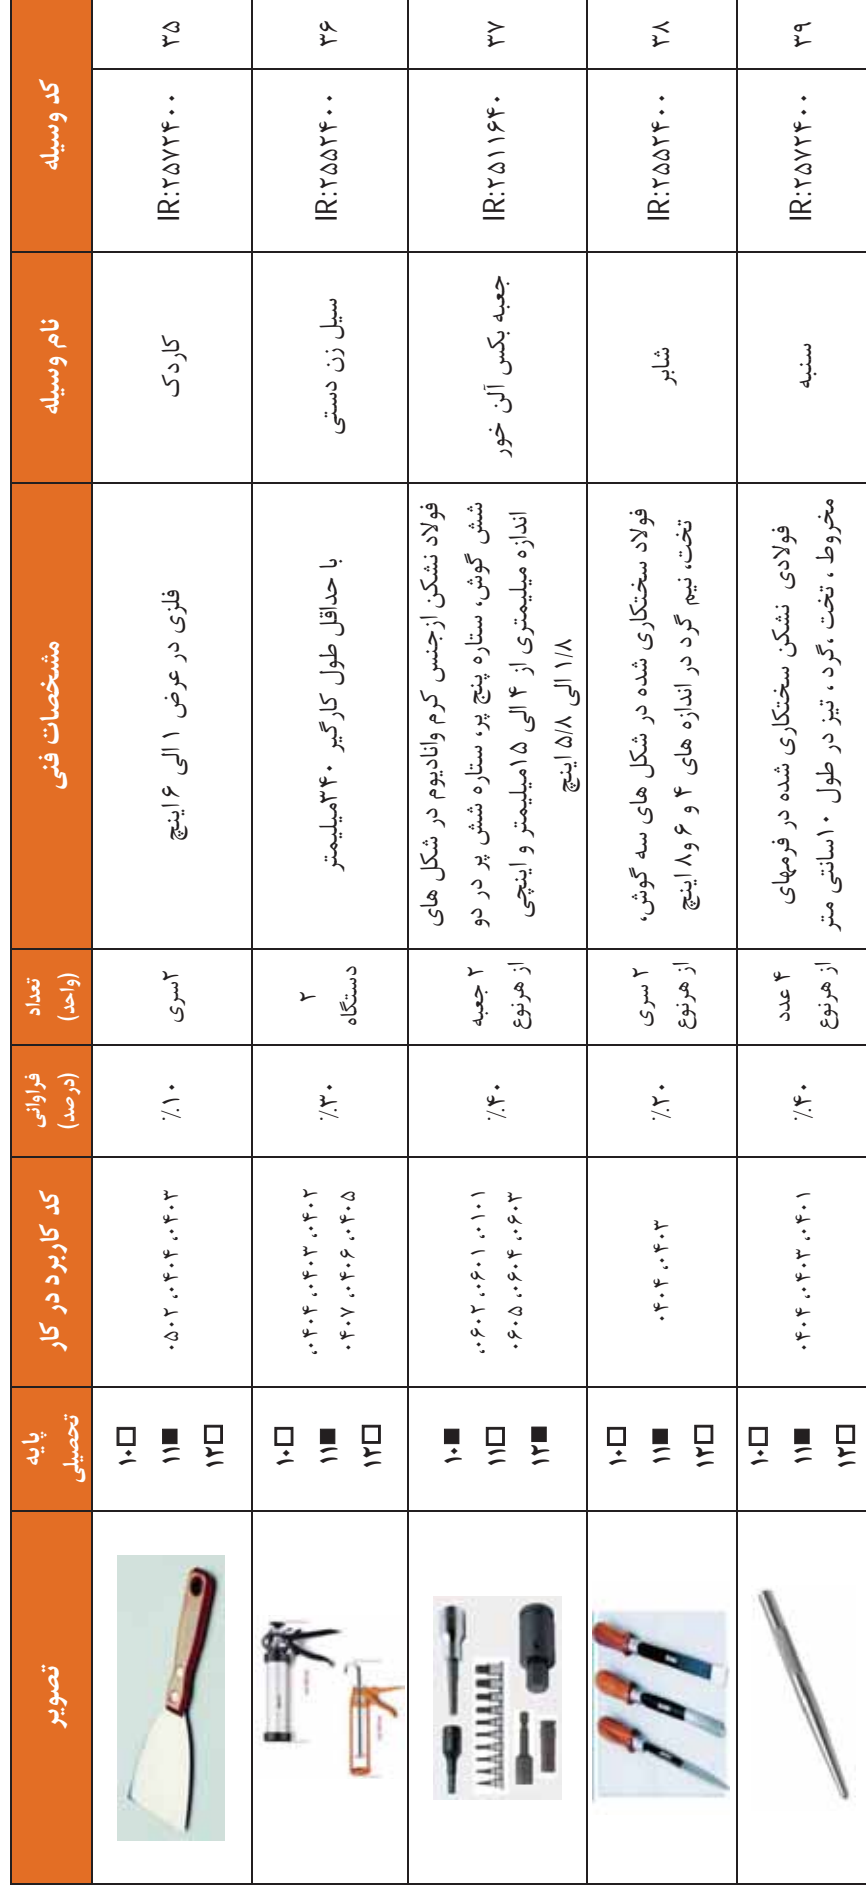 کد وسیله
نام وسیله
مشخصات فنی
تعداد
(واحد)
فراوانی
(درصد)
کد کاربرد در کار
پایه
تحصیلی
تصویر
۳۵
IR:۲۵۷۲۴۰۰
کاردک
فلزی در عرض ۱ الی ۶ اینچ
۲سری
٪۱۰
۰۴۰۳، ۰۴۰۴، ۰۵۰۲
۱۰□
۱۱■
۱۲□
۳۶
IR:۲۵۵۲۴۰۰
سیل زن دستی
با حداقل طول کارگیر ۳۴۰میلیمتر
۲
دستگاه
٪۳۰
۰۴۰۲، ۰۴۰۳، ۰۴۰۴،
۰۴۰۵، ۰۴۰۶، ۰۴۰۷
۱۰□
۱۱■
۱۲□
۳۷
IR:۲۵۱۱۶۴۰
جعبه بکس آلن خور
فولاد نشکن ازجنس کرم وانادیوم در شکل های
شش گوش، ستاره پنج پر، ستاره شش پر در دو
اندازه میلیمتری از ۴ الی ۱۵میلیمتر و اینچی
۱/۸ الی ۵/۸ اینچ
۲ جعبه
از هرنوع
٪۴۰
۰۱۰۱، ۰۶۰۱، ۰۶۰۲،
۰۶۰۳، ۰۶۰۴، ۰۶۰۵
۱۰■
۱۱□
۱۲■
۳۸
IR:۲۵۵۲۴۰۰
شابر
فولاد سختکاری شده در شکل های سه گوش،
تخت، نیم گرد در اندازه های ۴ و ۶ و۸ اینچ
۲ سری
از هرنوع
٪۲۰
۰۴۰۳، ۰۴۰۴
۱۰□
۱۱■
۱۲□
۳۹
IR:۲۵۷۲۴۰۰
سنبه
فولادی نشکن سختکاری شده در فرمهای
مخروط ، تخت ،گرد ، تیز در طول ۱۰سانتی متر
۴ عدد
از هرنوع
٪۴۰
۰۴۰۱، ۰۴۰۳، ۰۴۰۴
۱۰□
۱۱■
۱۲□